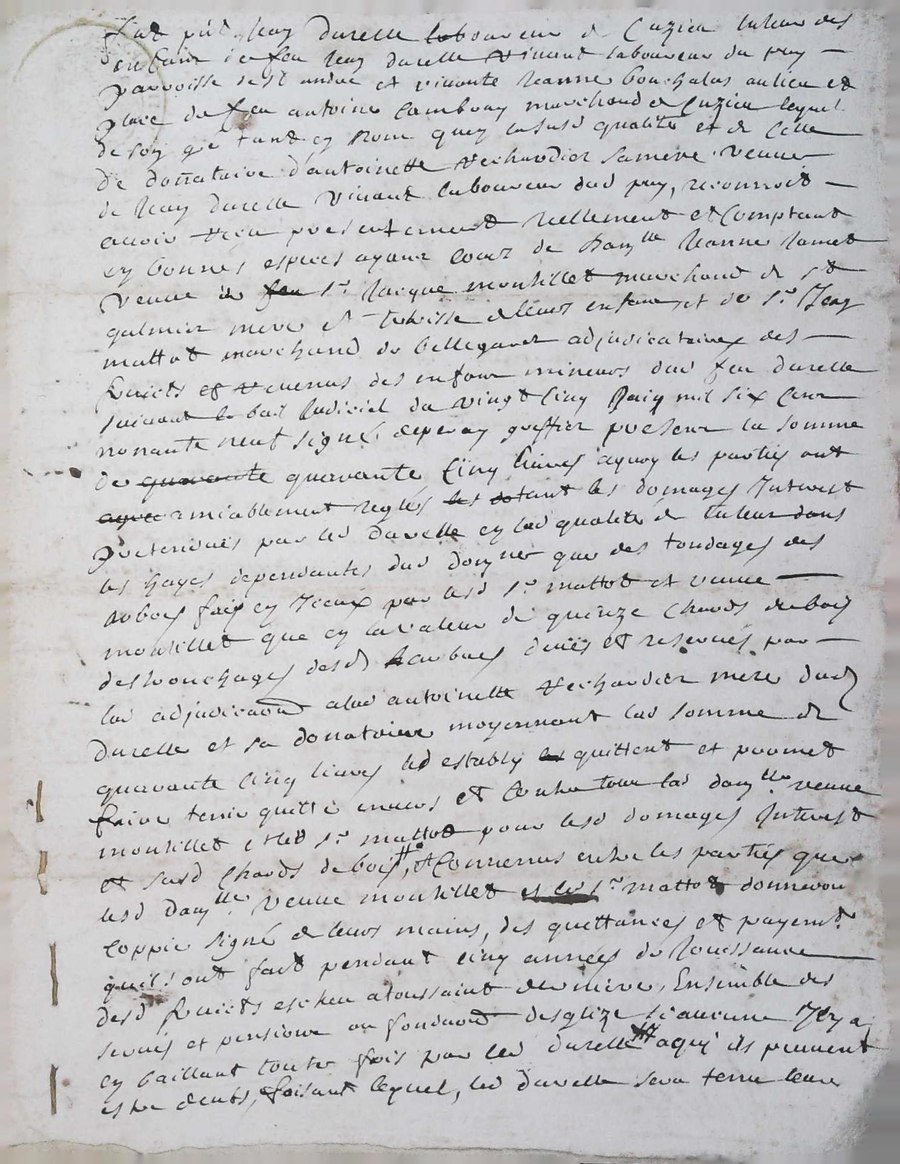 fut p̃nt Jean durelle laboureur de Cuzieu tuteur des
enfans de feu Jean durelle vivant laboureur du puy
parroisse de st andre et vivante Jeanne bouchalas au lieu et
place de feu antoine Cambray marchand de Cuzieu lequel
de son gré tant en son nom quen lasusd qualité et de celle
de donnataire d'antoinette Rechardier sa mere veuve
de Jean durelle vivant laboureur dud puy, reconnoit
avoir receu presentement reellement et Comptant
en bonnes especes ayant cours de dam.lle Jeanne
veuve de feu Sr Jacque montillet marchand de st
galmier mere et tutrisse de leurs enfans et de Sr Jean
mattot marchand de bellegarde adjudicataires des
fruicts et revenus des enfans mineurs dud feu durelle
suivant le bail Judiciel du vingt cinq mil six cens
nonante neuf signé deperay greffier present la somme
de quarante quarante Cinq livres aquoy les parties ont
amiablement reglés les tant les domages Interest
pretendues par led durelle en lad qualité de tuteur dans
les hayes dependantes dud domene que des tondages des
arbres fais en Iceux par lesd Sr mattot et veuve
montillet que en la valeur de quinze Chards de bois
des desd arbres deües et reservés par
lad adjudicaon a lad antoinette Rechardier mere dud
durelle et sa donatrice moyennant lad somme de
quarante cinq livres led estably les quittent et promet
faire tenir quitte envers et Contre tous lad dam.lle veuve
montillet et led Sr mattot pour lesd domages Interest
et susd Chards de bois, et Convenus entre les parties que
lesd dam.lle veuve montillet et led Sr mattot donneront
Coppie signé de leurs mains, des quittances et payemt.
quils ont fait pendant cinq années de Jouissance
desd fruicts escheu a toussaint derniere, Ensemble des
servis et pensions ou fondaon desglize si aucune Il y a
en baillant toute fois par led durelle a qui ils peuvent
estre deubs, faisant lequel, led durelle sera tenu leur